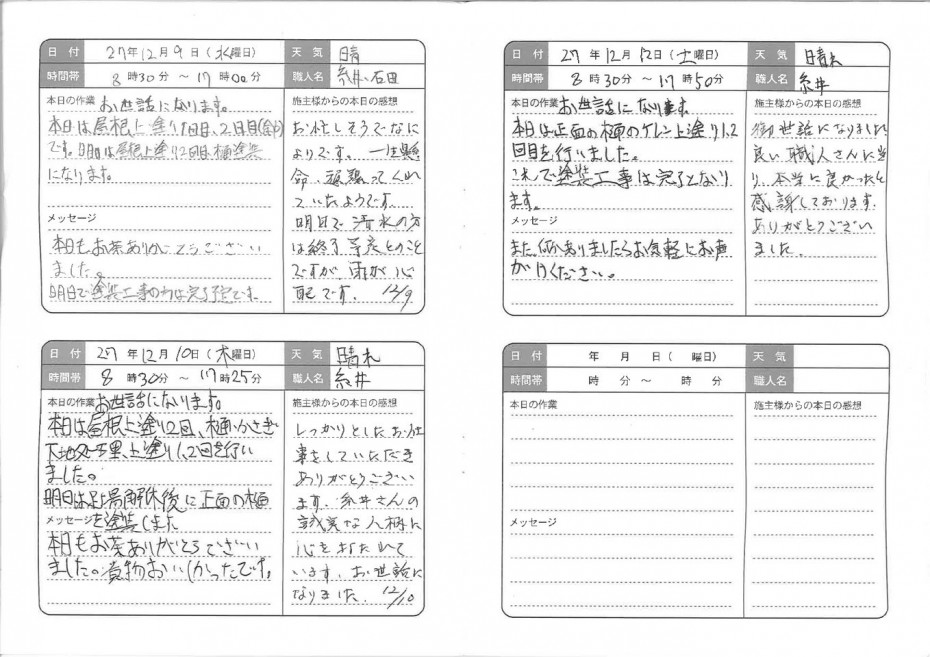 日 付 27年12月9日(水曜日) 天 気 晴
時間帯 8時30分 ～ 17時00分 職人名 糸井、石田
本日の作業 お世話になります。
本日は屋根上塗り1回目、2回目(途中)
です。明日は屋根上塗り2回目、樋塗装
になります。
メッセージ
本日もお茶ありがとうござい
ました。
明日で塗装工事の方は完了予定です。
施主様からの本日の感想
お忙しそうでなに
よりです。一生懸
命、頑張ってくれ
ていたようです。
明日で清水の方
は終了予定とのこと
ですが、雨が心
配です。 12/9
日 付 27年12月10日(木曜日) 天 気 晴れ
時間帯 8時30分 ～ 17時25分 職人名 糸井
本日の作業 お世話になります。
本日は屋根上塗り2回、樋、かさぎ
上塗り1,2回を行い
ました。
明日は足場解体後に正面の樋
を塗装します
メッセージ
本日もお茶ありがとうござい
ました。煮物おいしかったです。
施主様からの本日の感想
しっかりとしたお仕
事をしていただき
ありがとうござい
ます。糸井さんの
誠実な人柄に
心を打たれて
います。お世話に
なりました。 12/10
日 付 27年12月12日(土曜日) 天 気 晴れ
時間帯 8時30分 ～ 17時50分 職人名 糸井
本日の作業 お世話になります
本日は正面の樋のケレン上塗り1,2
回目を行いました。
これで塗装工事は完了となり
ます。
メッセージ
また何かありましたらお気軽にお声
がけください。
施主様からの本日の感想
御世話になりました
良い職人さんに当
り、本当に良かったと
感謝しております。
ありがとうござい
ました。
日 付 年 月 日( 曜日) 天 気
時間帯 時 分 ～ 時 分 職人名
本日の作業
メッセージ
施主様からの本日の感想